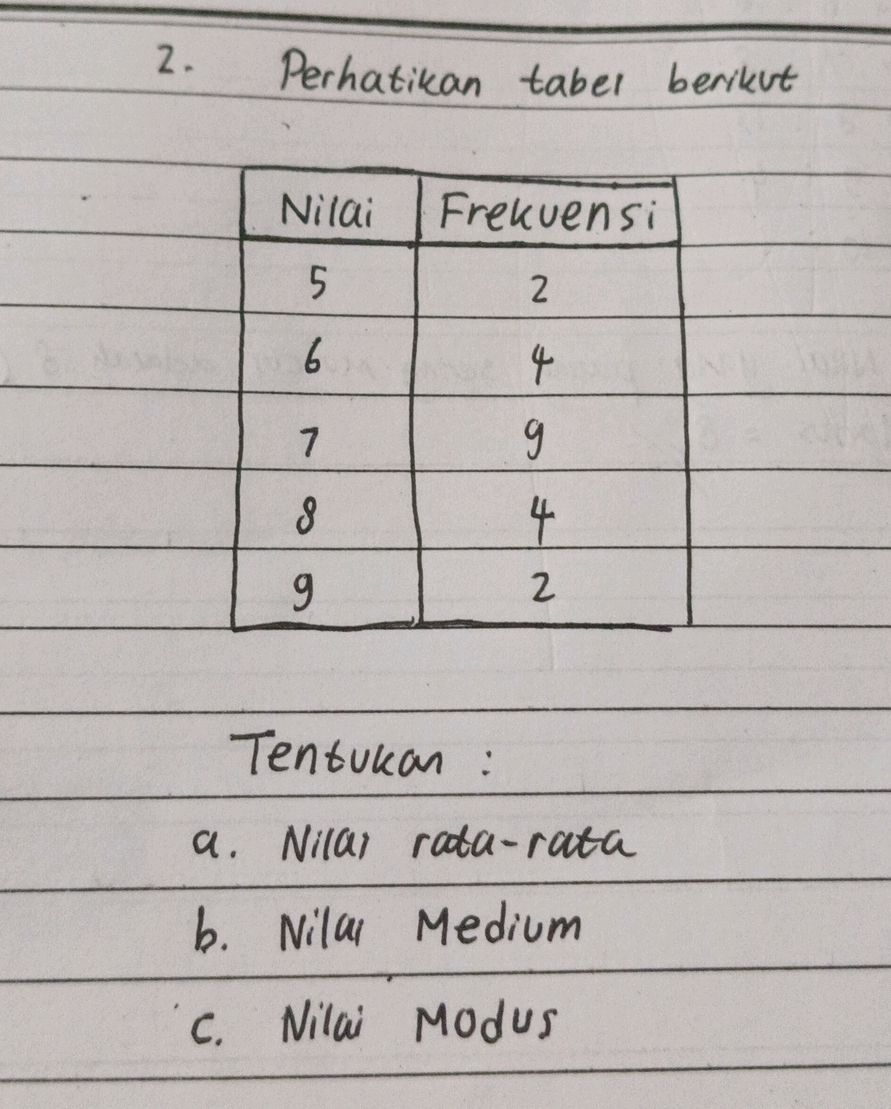 2. Perhatikan tabel berikut
Nilai Frekuensi
5 2
6 4
7 9
8 4
9 2
Tentukan :
a. Nilai rata-rata
b. Nilai Medium
c. Nilai Modus